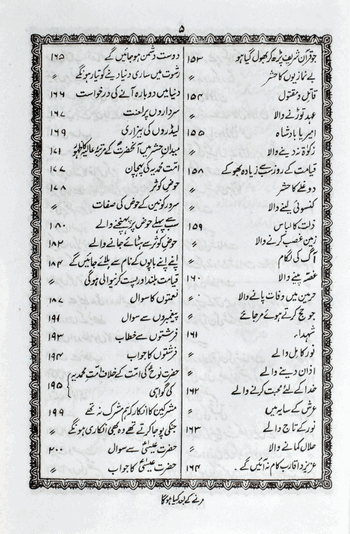 ۵
جو قرآن شریف پڑھ کر بھول گیا ہو ۱۵۳
بے نمازیوں کا حشر 〃
قاتل و مقتول ۱۵۴
عہد توڑنے والا 〃
امیر یا بادشاہ ۱۵۵
زکوٰۃ نہ دینے والا 〃
قیامت کے روز سب سے زیادہ بھوکے ۱۵۸
دوغلے کا حشر 〃
کنسوئی لینے والا 〃
ذلت کا لباس ۱۵۹
زمین غصب کرنے والا 〃
آگ کی لگام 〃
غصہ پینے والا ۱۶۰
حرمین میں وفات پانے والا 〃
جو حج کرتے ہوئے مر جائے 〃
شہداء ۱۶۱
نور کامل والے 〃
اذان دینے والے 〃
خدا کے لئے محبت کرنے والے ۱۶۲
عرش کے سایہ میں 〃
نور کے تاج والے ۱۶۳
حلال کمانے والا 〃
عزیز و اقارب کام نہ آئیں گے۔ ۱۶۴
دوست دشمن ہو جائیں گے ۱۶۵
رشوت میں ساری دنیا دینے کو تیار ہونگے 〃
دنیا میں دوبارہ آنے کی درخواست ۱۶۶
سرداروں پر لعنت ۱۶۷
لیڈروں کی بیزاری ۱۶۹
میدان حشر میں آنحضرت کے مرتبہ عالیہ کا ظہور ۱۷۱
امت محمدیہ کی پہچان ۱۷۷
حوض کوثر ۱۷۸
سرور کونین کے حوض کی صفات 〃
سب سے پہلے حوض پر پہنچنے والے ۱۸۰
حوض کوثر سے ہٹائے جانے والے ۱۸۲
اپنے اپنے باپوں کے نام سے بلائے جائیں گے ۱۸۴
قیامت بلند اور پست کرنیوالی ہوگی 〃
نعمتوں کا سوال ۱۸۷
پیغمبروں سے سوال ۱۹۱
فرشتوں سے خطاب ۱۹۳
فرشتوں کا جواب ۱۹۴
حضرت نوحؑ کی امت کے خلاف امت محمدیہ
کی گواہی ۱۹۵
مشرکین کا انکار کہ ہم مشرک نہ تھے ۱۹۹
جنکی پوجا کرتے تھے وہ بھی انکاری ہونگے 〃
حضرت عیسیٰؑ سے سوال ۲۰۰
حضرت عیسیٰؑ کا جواب 〃
مرنے کے بعد کیا ہوگا